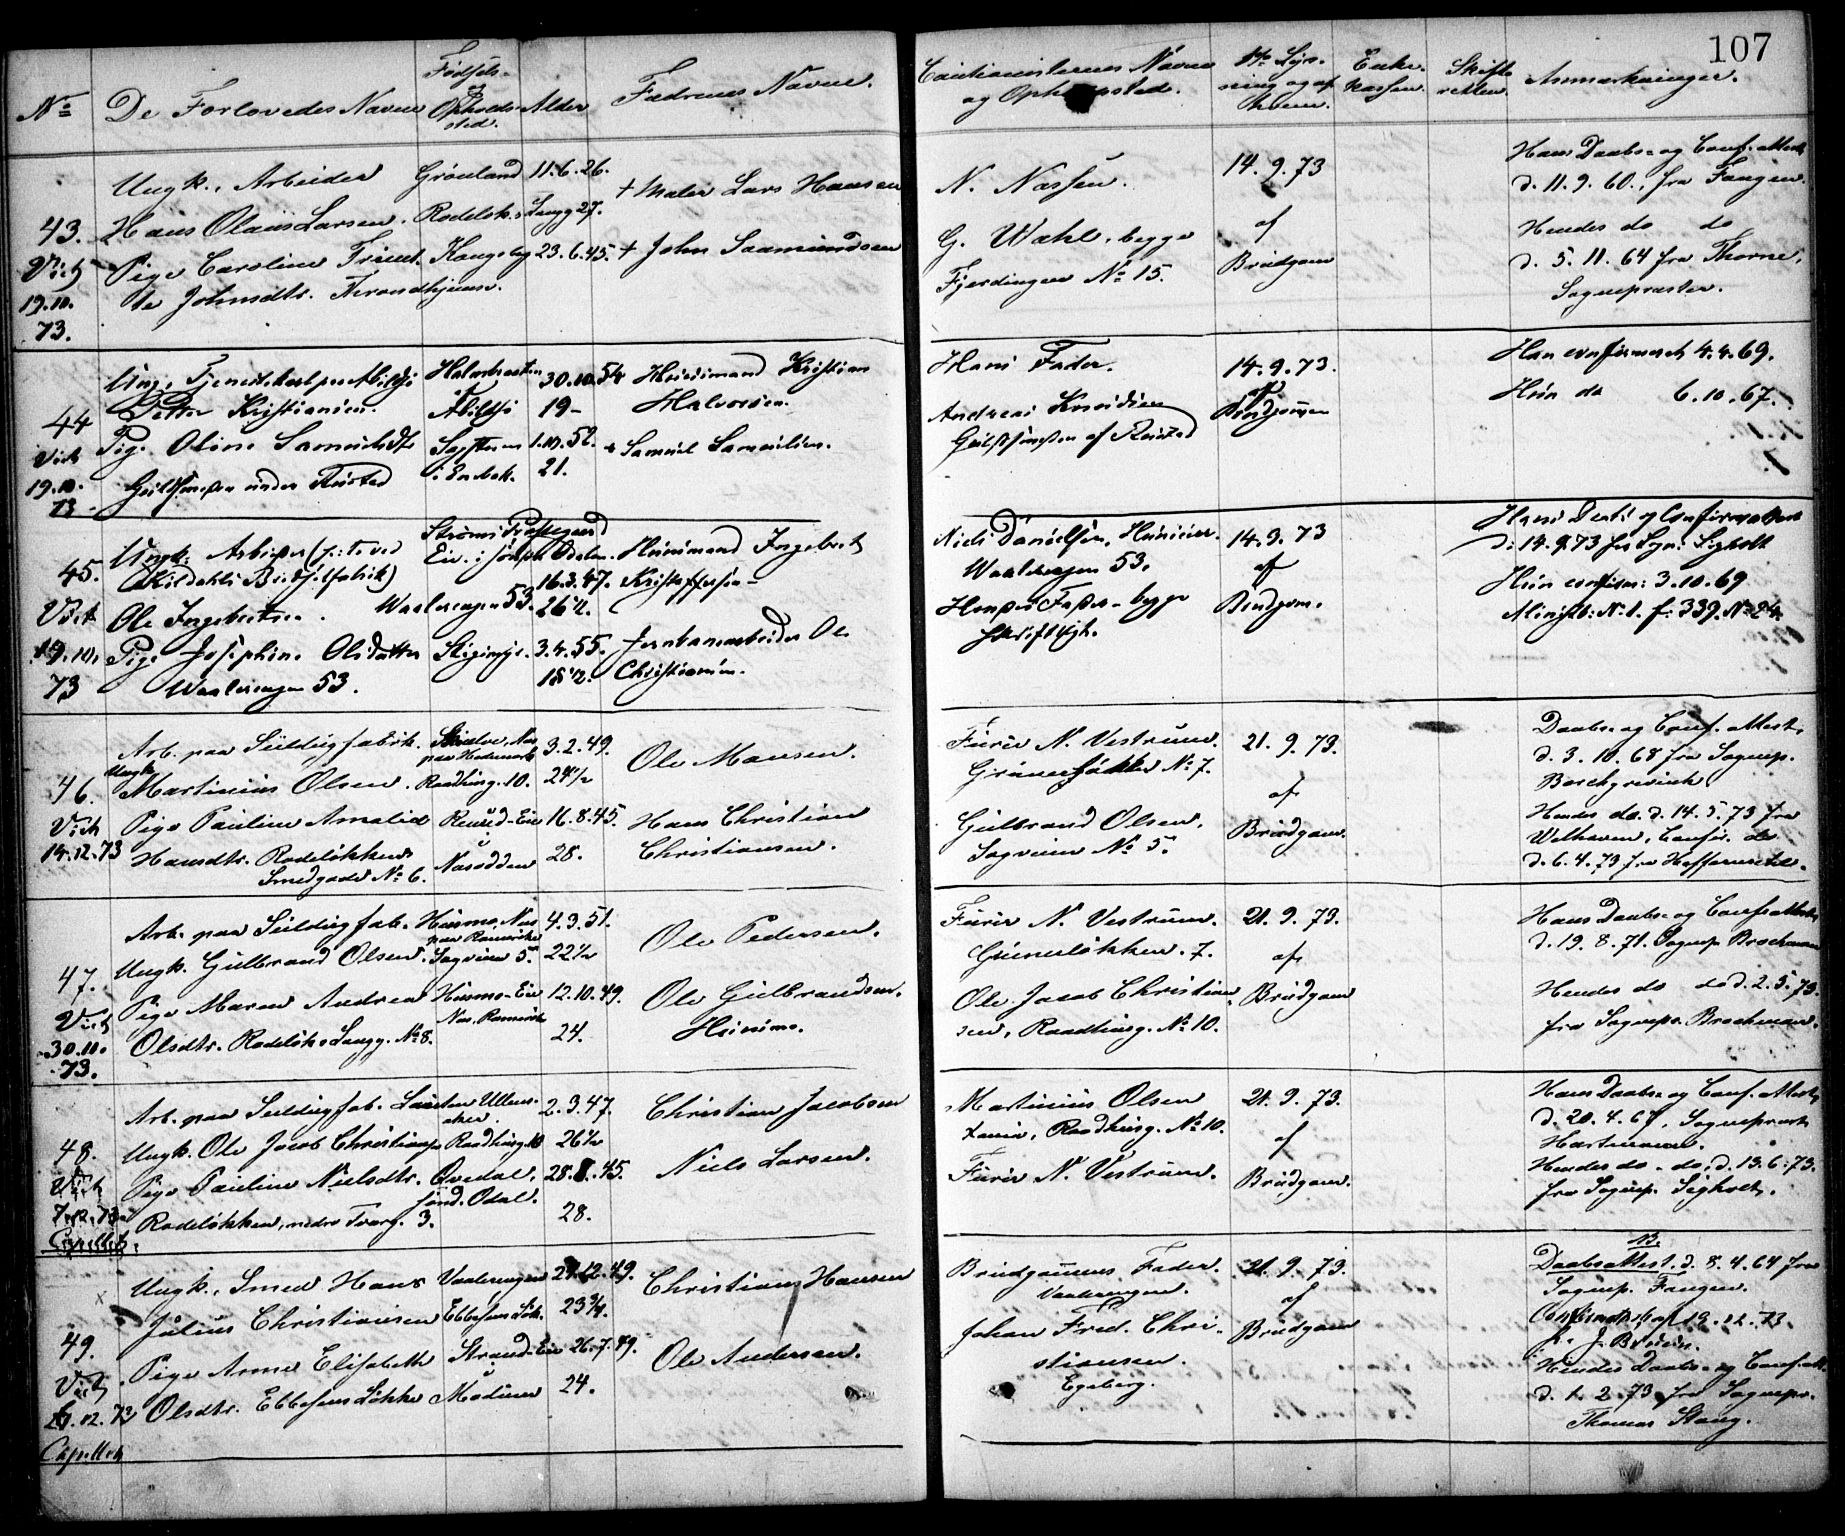 107
No
De Forlovedes Navne
Fødsels-
og
Opholds-
sted.
Alder
Fædrenes Navne.
Cautionisternes Navne
og Opholdssted.
Lys-
ning og af
hvem.
Enke-
kassen.
Skifte
retten.
Anmærkninger.
43.
Viet
19.10.
73.
Ungk., Arbeider
Hans Olaus Larsen.
Pige Caroline Trine
Johnsdtr. Throndhjemsv.
Grønland
Rodeløk. Langg 27.
Kongsby
11.6.26.
23.6.45.
+ Maler Lars Hansen
+ John Saamundsen
N. Nassen.
G. Wahl, begge
Fjerdingen No 15.
14.9.73
af
Brudgom
Hans Daabs- og Conf. attest
d. 11.9.60, fra Fangen.
Hendes do do
d. 5.11.64 fra Thorne,
Sognepræster.
44
Viet
19.10.
73.
Petter Kristiansen.
Pige Oline Samuelsdtr
under Rustad
Abildsø
i Enebak.
30.10.54
19-
1.10.52.
21.
Huusmand Kristian
Halvorsen.
+ Samuel Samuelsen.
Hans Fader.
Andreas Knudsen
af Rustad
14.9.73.
af
Brudgommen
Han confirmeret 4.4.69.
Hun do 6.10.67.
45.
Viet
19.10.
73
Ungk. Arbeider
Ole Ingebretsen.
Waalerengen 53.
Pige Josephine Olsdatter
Waalerengen 53.
16.3.47.
26½.
3.4.55.
18½.
Huusmand Ingebret
Kristoffersen
Jernbanearbeider Ole
Christiansen.
Niels Danielsen, Huuseier.
Waalerengen 53.
Hendes Fader- begge
skriftligh.
14.9.73
af
Brudgom.
d: 14.9.73 fra Sgpr. Sigholt
Hun confirm: 3.10.69
Minist: No 1. f: 339. No 24.
46.
Viet
14.12.73
Arb. paa Seildugfabrik.
Ungk.
Martinius Olsen.
Pige Pauline Amalie
Hansdtr. Rodeløkkens
Smedgade No 6.
paa Hedemark
Raadhusg. 10.
Nesodden
3.2.49.
24½
16.8.45.
28.
Ole Monsen.
Hans Christian
Christiansen.
Furer N. Vestrum.
Grünerløkken No 7.
Gulbrand Olsen.
Sagveien No 5.
21.9.73.
af
Brudgom.
Daabs- og Conf. attest,
d. 3.10.68 fra Sognep.
Borchgrevink.
Hendes do. d. 14.5.73 fra
Welhaven, Confir. do
d. 6.4.73 fra
47.
Viet
30.11.
73.
Arb. paa Seildugfab.
Ungk. Gulbrand Olsen.
Pige Maren Andrea
Olsdtr. Rodeløk. Langg. No 8.
Husmo, Næs
paa Romerike
Sagveien 5.
Husmo-Eie
Næs, Romerike
4.3.51.
22½
12.10.49.
24.
Ole Pedersen.
Ole Gulbrandsen.
Husmo.
Furer N. Vestrum.
Grünerløkken. 7.
Ole Jacob Christian-
sen, Raadhusg. No 10.
21.9.73.
af
Brudgom
Hans Daabs- og Confs attest
d. 19.8.71. Sognep. Brochman
Hendes do do d. 2.5.73.
fra Sognepr. Brochman.
48.
Viet
7.12.73
Capellet.
Arb. paa Seildugfab.
Ungk. Ole Jacob Christians.
Pige Pauline Nielsdtr.
Rodeløkken, nedre Tværg. 3.
Ullens-
aker.
Raadhusg. 10
sønd. Odal.
2.3.47.
26½
28.8.45.
28.
Christian Jacobsen
Niels Larsen.
Martinius Olsen
Raadhusg. No 10.
Furer N. Vestrum.
21.9.73.
af
Brudgom.
Hans Daabs- og Conf. attest,
d. 20.4.67, Sogneprest
Hartmann.
Hendes do. do. d. 13.6.73.
fra Sognep. Sigholt.
49.
Viet
26.12.73
Capellet
Ungk., Smed Hans
Julius Christiansen
Pige Anne Elisabeth
Olsdtr. Ebbesens Løkke
Vaalerengen
Ebbesens Løk.
Strand-Eie
i
Modum
27.12.49.
23¾.
26.7.49.
24.
Christian Hansen
Ole Andersen.
Brudgommens Fader.
Vaalerengen.
Johan Fred. Chri-
stiansen.
Egeberg.
21.9.73.
af
Brudgom
NB.
Daabsattest. d. 8.4.64 fra
Sognep. Fangen.
19.12.73
Hendes Daabs- og Conf. att.
d. 1.2.73 fra Sognepr.
Thomas Stang.